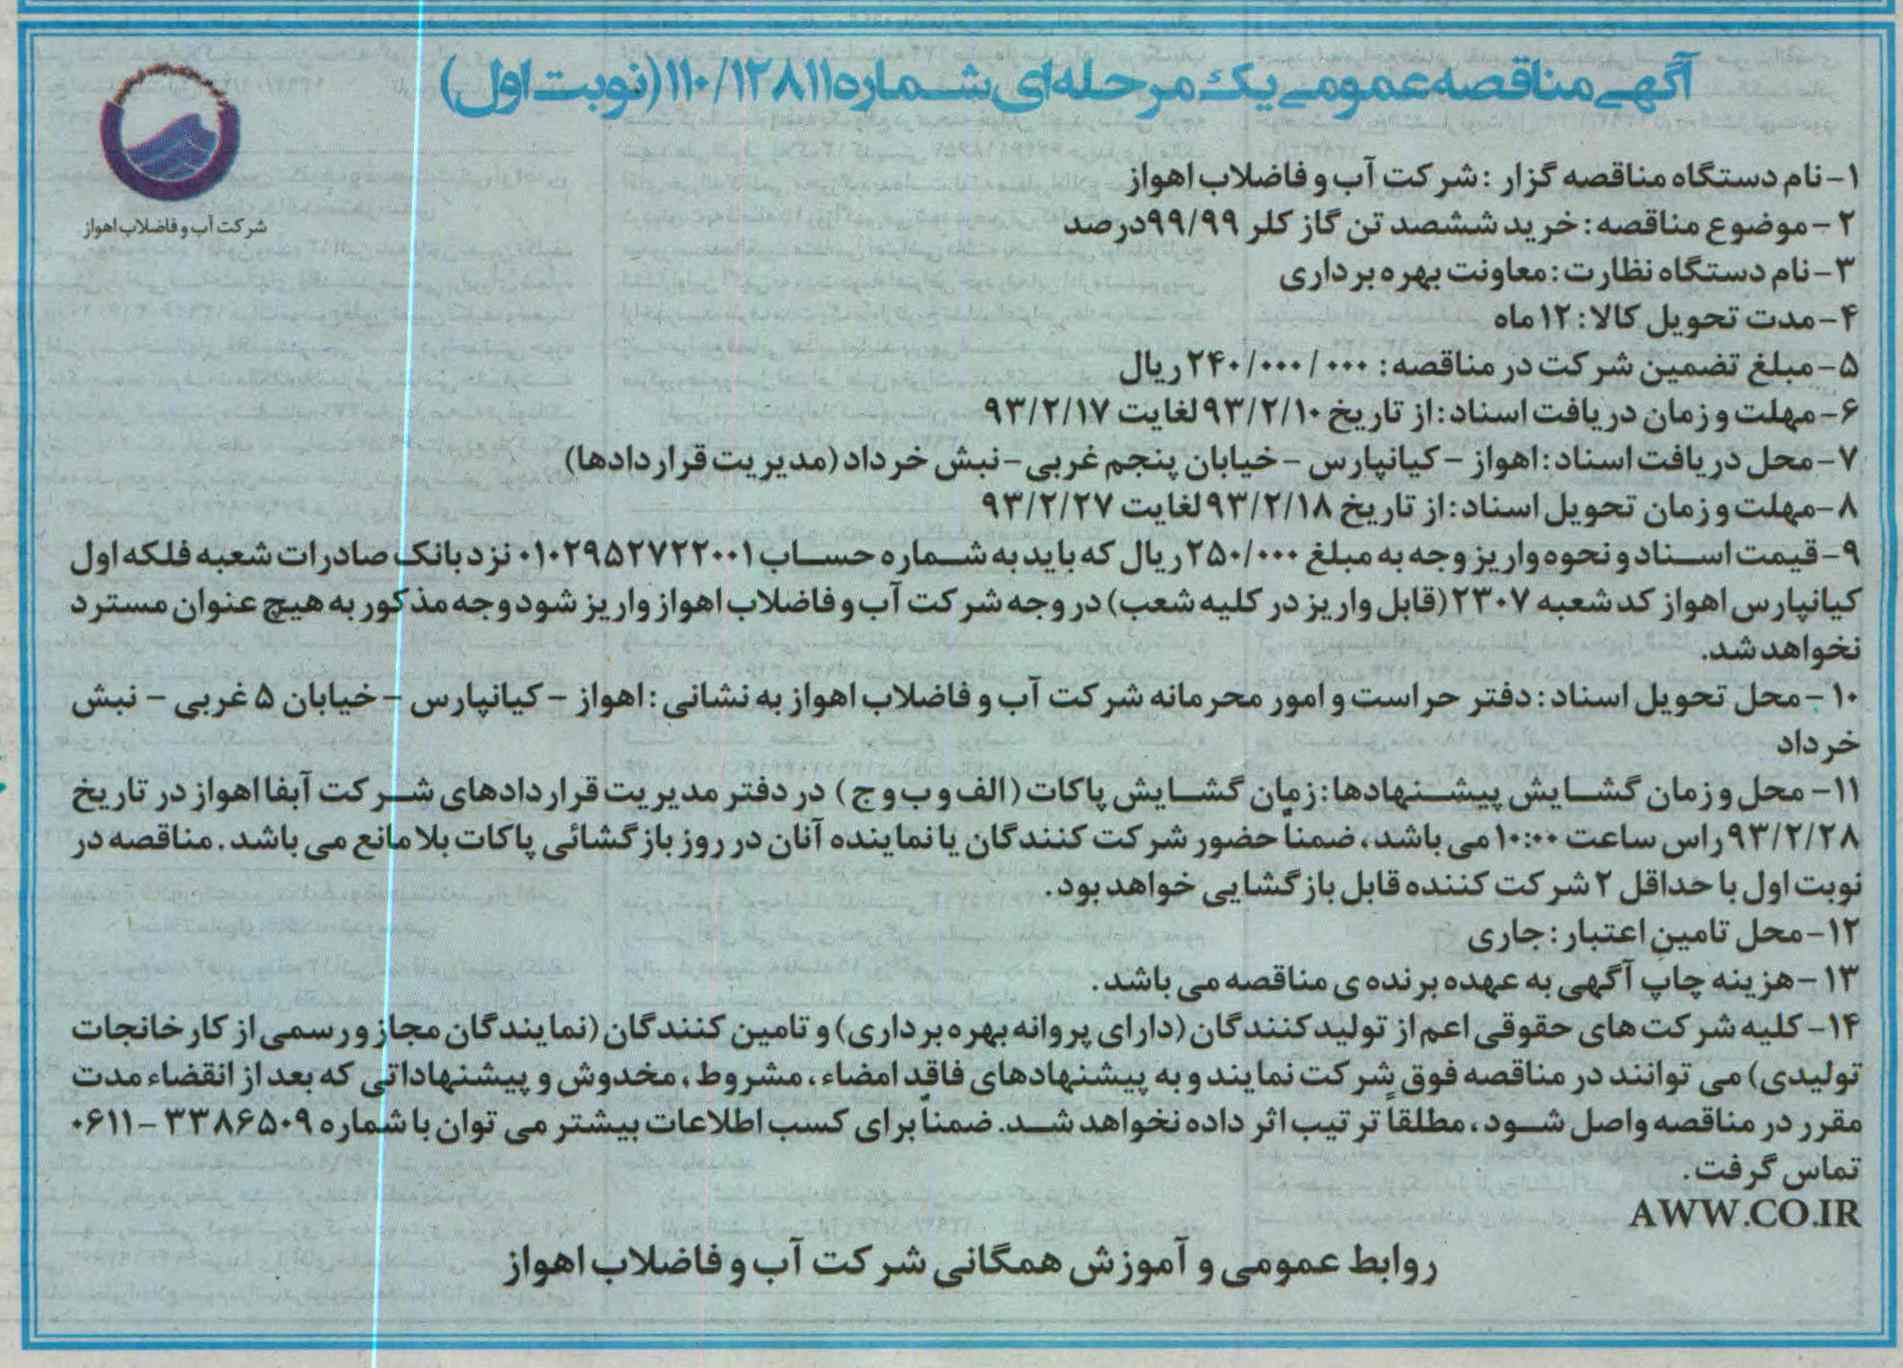 آگهی مناقصه عمومی یک مرحله‌ای شماره ۱۱۰/۱۲۸۱۱ (نوبت اول)
شرکت آب و فاضلاب اهواز
۱- نام دستگاه مناقصه گزار : شرکت آب و فاضلاب اهواز
۲- موضوع مناقصه : خرید ششصد تن گاز کلر ۹۹/۹۹درصد
۳- نام دستگاه نظارت : معاونت بهره برداری
۴- مدت تحویل کالا: ۱۲ ماه
۵- مبلغ تضمین شرکت در مناقصه : ۲۴۰/۰۰۰/۰۰۰ ریال
۶- مهلت و زمان دریافت اسناد : از تاریخ ۹۳/۲/۱۰ لغایت ۹۳/۲/۱۷
۷- محل دریافت اسناد : اهواز - کیانپارس - خیابان پنجم غربی - نبش خرداد (مدیریت قراردادها)
۸- مهلت و زمان تحویل اسناد : از تاریخ ۹۳/۲/۱۸ لغایت ۹۳/۲/۲۷
۹- قیمت اسناد و نحوه واریز وجه به مبلغ ۲۵۰/۰۰۰ ریال که باید به شماره حساب ۰۱۰۲۹۵۲۷۲۲۰۰۱ نزد بانک صادرات شعبه فلکه اول
کیانپارس اهواز کد شعبه ۲۳۰۷ (قابل واریز در کلیه شعب) در وجه شرکت آب و فاضلاب اهواز واریز شود وجه مذکور به هیچ عنوان مسترد
نخواهد شد.
۱۰- محل تحویل اسناد : دفتر حراست و امور محرمانه شرکت آب و فاضلاب اهواز به نشانی : اهواز - کیانپارس - خیابان ۵ غربی - نبش
خرداد
۱۱- محل و زمان گشایش پیشنهادها: زمان گشایش پاکات (الف و ب و ج) در دفتر مدیریت قراردادهای شرکت آبفا اهواز در تاریخ
۹۳/۲/۲۸ راس ساعت ۱۰:۰۰ می باشد، ضمناً حضور شرکت کنندگان یا نماینده آنان در روز بازگشائی پاکات بلامانع می باشد. مناقصه در
نوبت اول با حداقل ۲ شرکت کننده قابل بازگشایی خواهد بود.
۱۲- محل تامین اعتبار : جاری
۱۳- هزینه چاپ آگهی به عهده برنده ی مناقصه می باشد.
۱۴- کلیه شرکت های حقوقی اعم از تولید کنندگان (دارای پروانه بهره برداری) و تامین کنندگان (نمایندگان مجاز و رسمی از کارخانجات
تولیدی) می توانند در مناقصه فوق شرکت نمایند و به پیشنهادهای فاقد امضاء، مشروط، مخدوش و پیشنهاداتی که بعد از انقضاء مدت
مقرر در مناقصه واصل شود، مطلقاً ترتیب اثر داده نخواهد شد. ضمناً برای کسب اطلاعات بیشتر می توان با شماره ۳۳۸۶۵۰۹-۰۶۱۱
تماس گرفت.
AWW.CO.IR
روابط عمومی و آموزش همگانی شرکت آب و فاضلاب اهواز